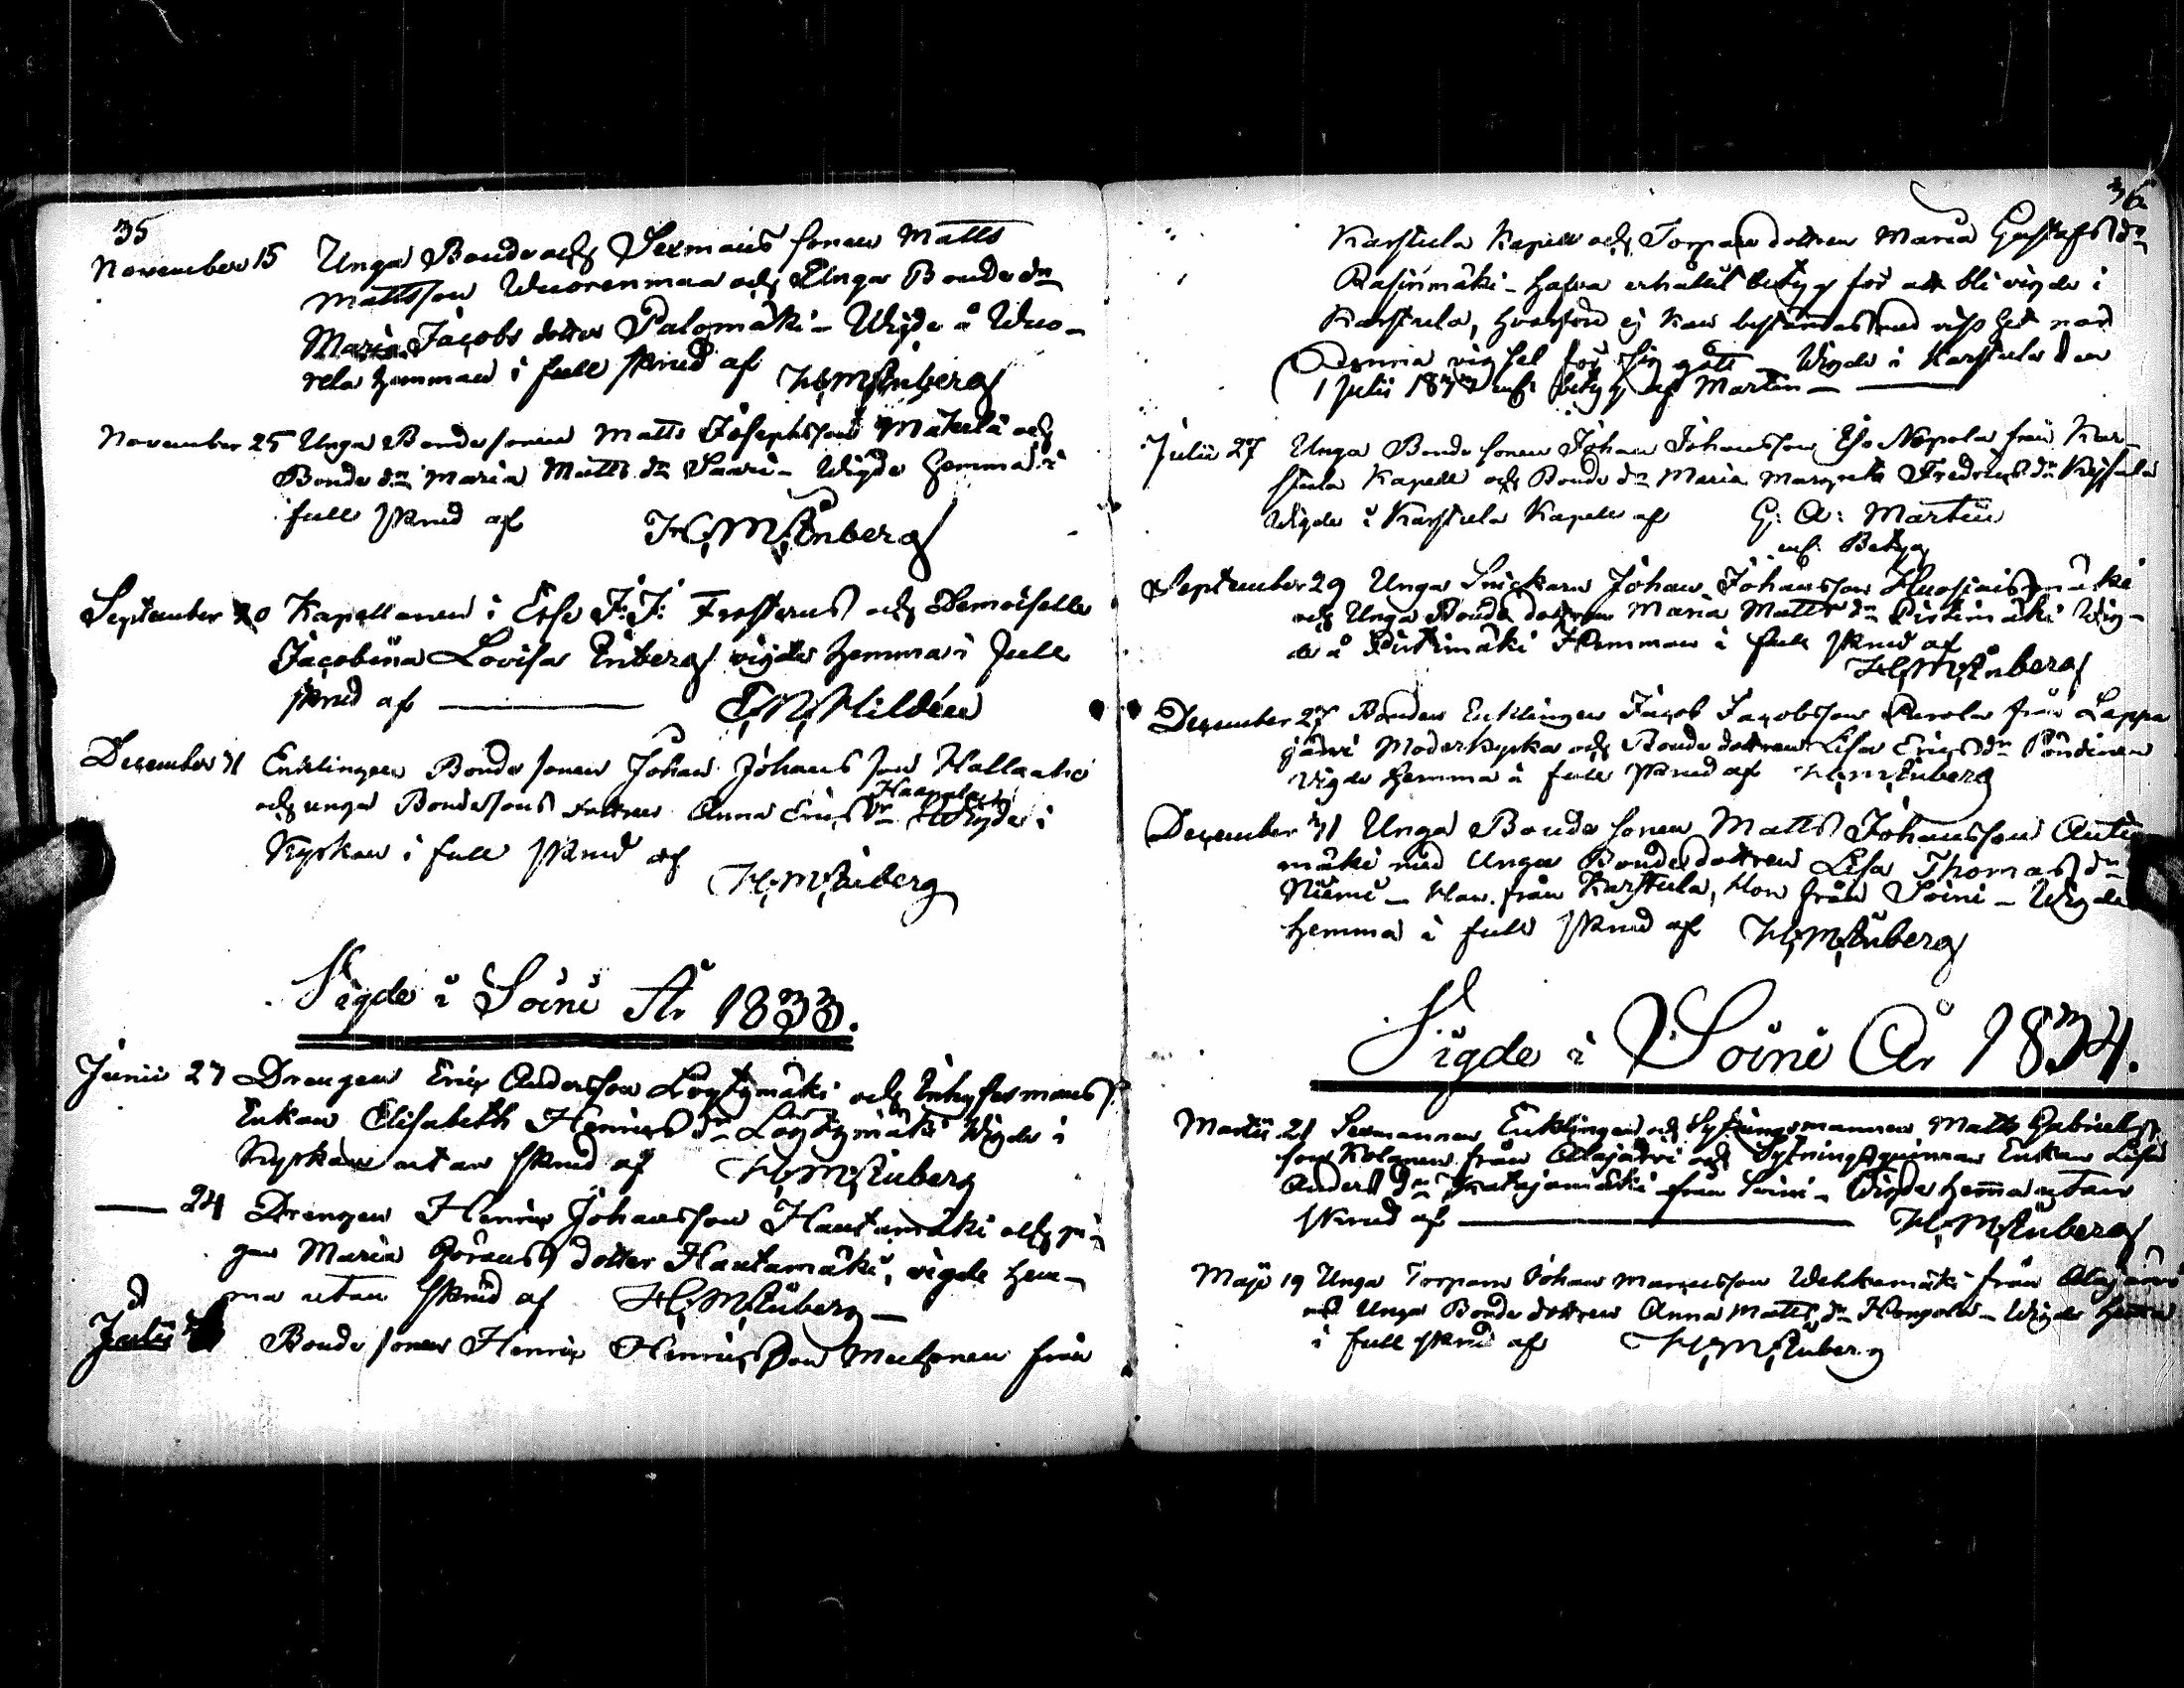 35
November 15 Unga Bonde och Sexmans sonen Matts
Mattsson Wuorenmaa och Unga Bonde dn
Maria Jacobs dotter Palomäki – Wigde å Wuo-
rela hemman i full skrud af H: M: Enberg
November 25 Unga Bondesonen Matts Josephsson Mäkelä och
Bonde dn Maria Matts dn Saari – Wigde hemma i
full skrud af H: M: Enberg
September 20 Kapellanen i Esse J: J: Frosterus och Demoiselle
Jacobina Lovisa Enberg vigde hemma i full
skrud af E: N: Hildéen
December 31 Enklingen Bonde sonen Johan Johans son
Haapala
och unga Bondesons dottren Anna Erics dr Wigde i
Kyrkan i full skrud af H: M: Enberg
Vigde i Soini År 1833.
Junii 27 Drengen Eric Andersson Löytymäki och Inhysesmans
Enkan Elisabeth Henrics dn Löytymäki Wigde i
Kyrkan utan skrud af H: M: Enberg
— 24 Drengen Henric Johansson Hautamäki och pi-
gan Maria Görans dotter Hautamäki, vigde hem-
ma utan skrud af H: M: Enberg –
Julii Bonde sonen Henric Henricsson från
36
Karstula Kapell och Torpare dottren Maria Gustafs dn
Rasinmäki – hafva erhållit betyg för att bli vigde i
Karstula, hvarföre ej kan bestämmas med viss het når
Denna vigsel för sig gått Wigde i Karstula den
1 Julii 1833 enl: betyg af Martin –
Julii 27 Unga Bonde sonen Johan Johansson från Kar-
stula Kapell och Bonde dn Maria Margreta Fredrics dn
Wigde i Karstula Kapell af G: A: Martin
enl: Betyg
September 29 Unga Snickarn Johan Johansson
och Unga Bonde dottren Maria Matts dn Ristimäki Wig-
de å Ristimäki Hemman i full skrud af
H: M: Enberg
December 27 Bonden Enklingen Jacob Jacobsson från Lappa
järvi Moderkyrka och Bonde dottren Lisa Erics dn Pöndinen
Vigde hemma i full skrud af H: M: Enberg
December 31 Unga Bonde sonen Matts Johansson Auti
mäki med Unga Bondedottren Lisa Thomas dn
Niemi – Han från Karstula, Hon från Soini – Wigde
hemma i full skrud af H: M: Enberg
Vigde i Soini År 1834.
Martii 21 Sexmannen Enklingen och Sytningsmannen Matts Gabriels
son Kolanen från Alajärvi och Sytningsquinnan Enkan Lisa
Anders dn Katajamäki från Soini – Wigde hemma utan
skrud af H: M: Enberg
Maji 19 Unga Torparn Johan Vehkamäki från Alajärvi
och Unga Bonde dottren Anna Matts dn – Wigde hemma
i full skrud af H: M: Enberg